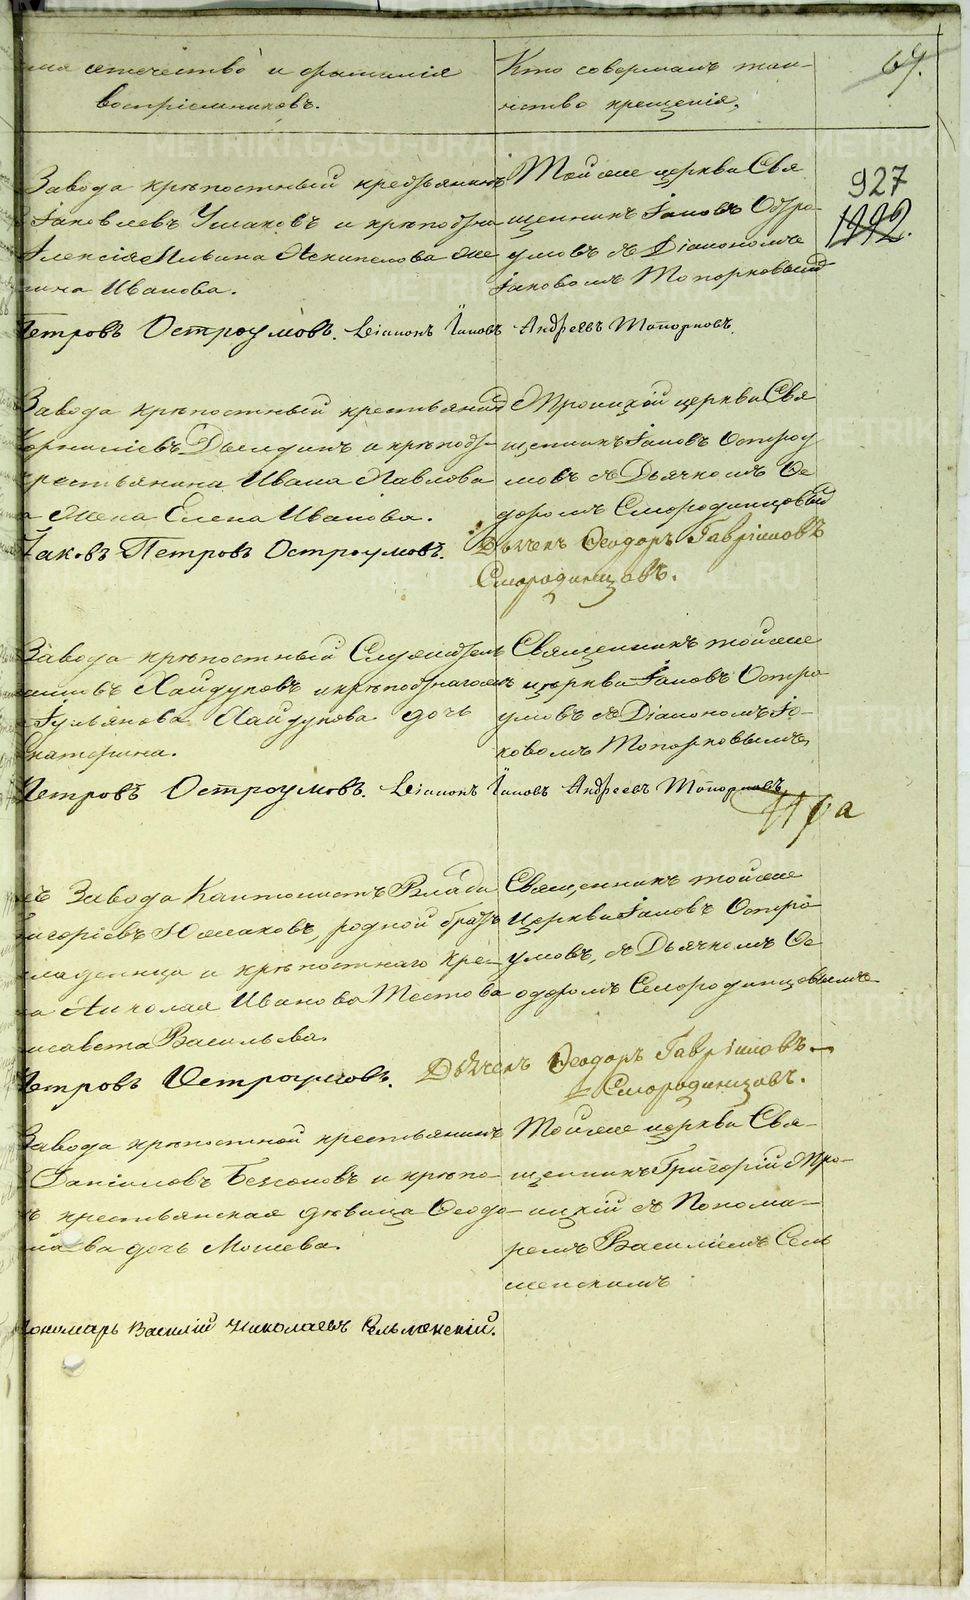 имя отечество и фамилія
воспріемниковъ.
Кто совершалъ таин-
ство крещенія,
69.
927
1112.
Завода крѣпостный крестьянинъ
Іаковлевъ Ушаковъ и крѣпостна
Алексія Ильина же
Иванова.
Тойже церкви Свя
щенникъ Іаковъ Остро-
умовъ съ Діакономъ
Іаковомъ Топорковымъ
Петровъ Остроумовъ. Діаконъ Іаковъ Андреевъ Топорковъ.
Завода крѣпостный крестьянинъ
Корниліевъ и крѣпост-
крестьянина Ивана Павлова
жена Елена Иванова.
Троицкой церкви Свя
щенникъ Іаковъ Остроу
мовъ съ Дьячкомъ Ѳе
доромъ Смородинцовым
Іаковъ Петровъ Остроумовъ. Дьячекъ Ѳеодоръ Гавріиловъ
Смородинцовъ.
Завода крѣпостный Служитель
Хайдуковъ и крѣпостнагоже
Хайдукова дочь
Екатерина.
Священникъ тойже
церкви Іаковъ Остро
умовъ съ Діакономъ Іа-
ковомъ Топорковымъ
Петровъ Остроумовъ. Діаконъ Іаковъ Андреевъ Топорковъ
Завода Кантонистъ Влади
Григоріевъ родной братъ
младенца и крѣпостнаго кре-
Николая Иванова Тестова
Елисавета Васильева.
Священникъ тойже
Церкви Іаковъ Остро
умовъ, съ Дьячкомъ Ѳе
одоромъ Смородинцовымъ
Петровъ Остроумовъ. Дьячекъ Ѳеодоръ Гавріиловъ
Смородинцовъ.
Завода крѣпостной крестьянинъ
Безсоновъ и крѣпо-
крестьянская дѣвица Ѳеодо-
ва дочь Мошева.
Тойже церкви Свя-
щенникъ Григорій Тро-
ицкій съ Понома-
ремъ Василіемъ Сель
менскимъ
Пономарь Василій Николаевъ Сельменскій.
METRIKI.GASO-URAL.RU